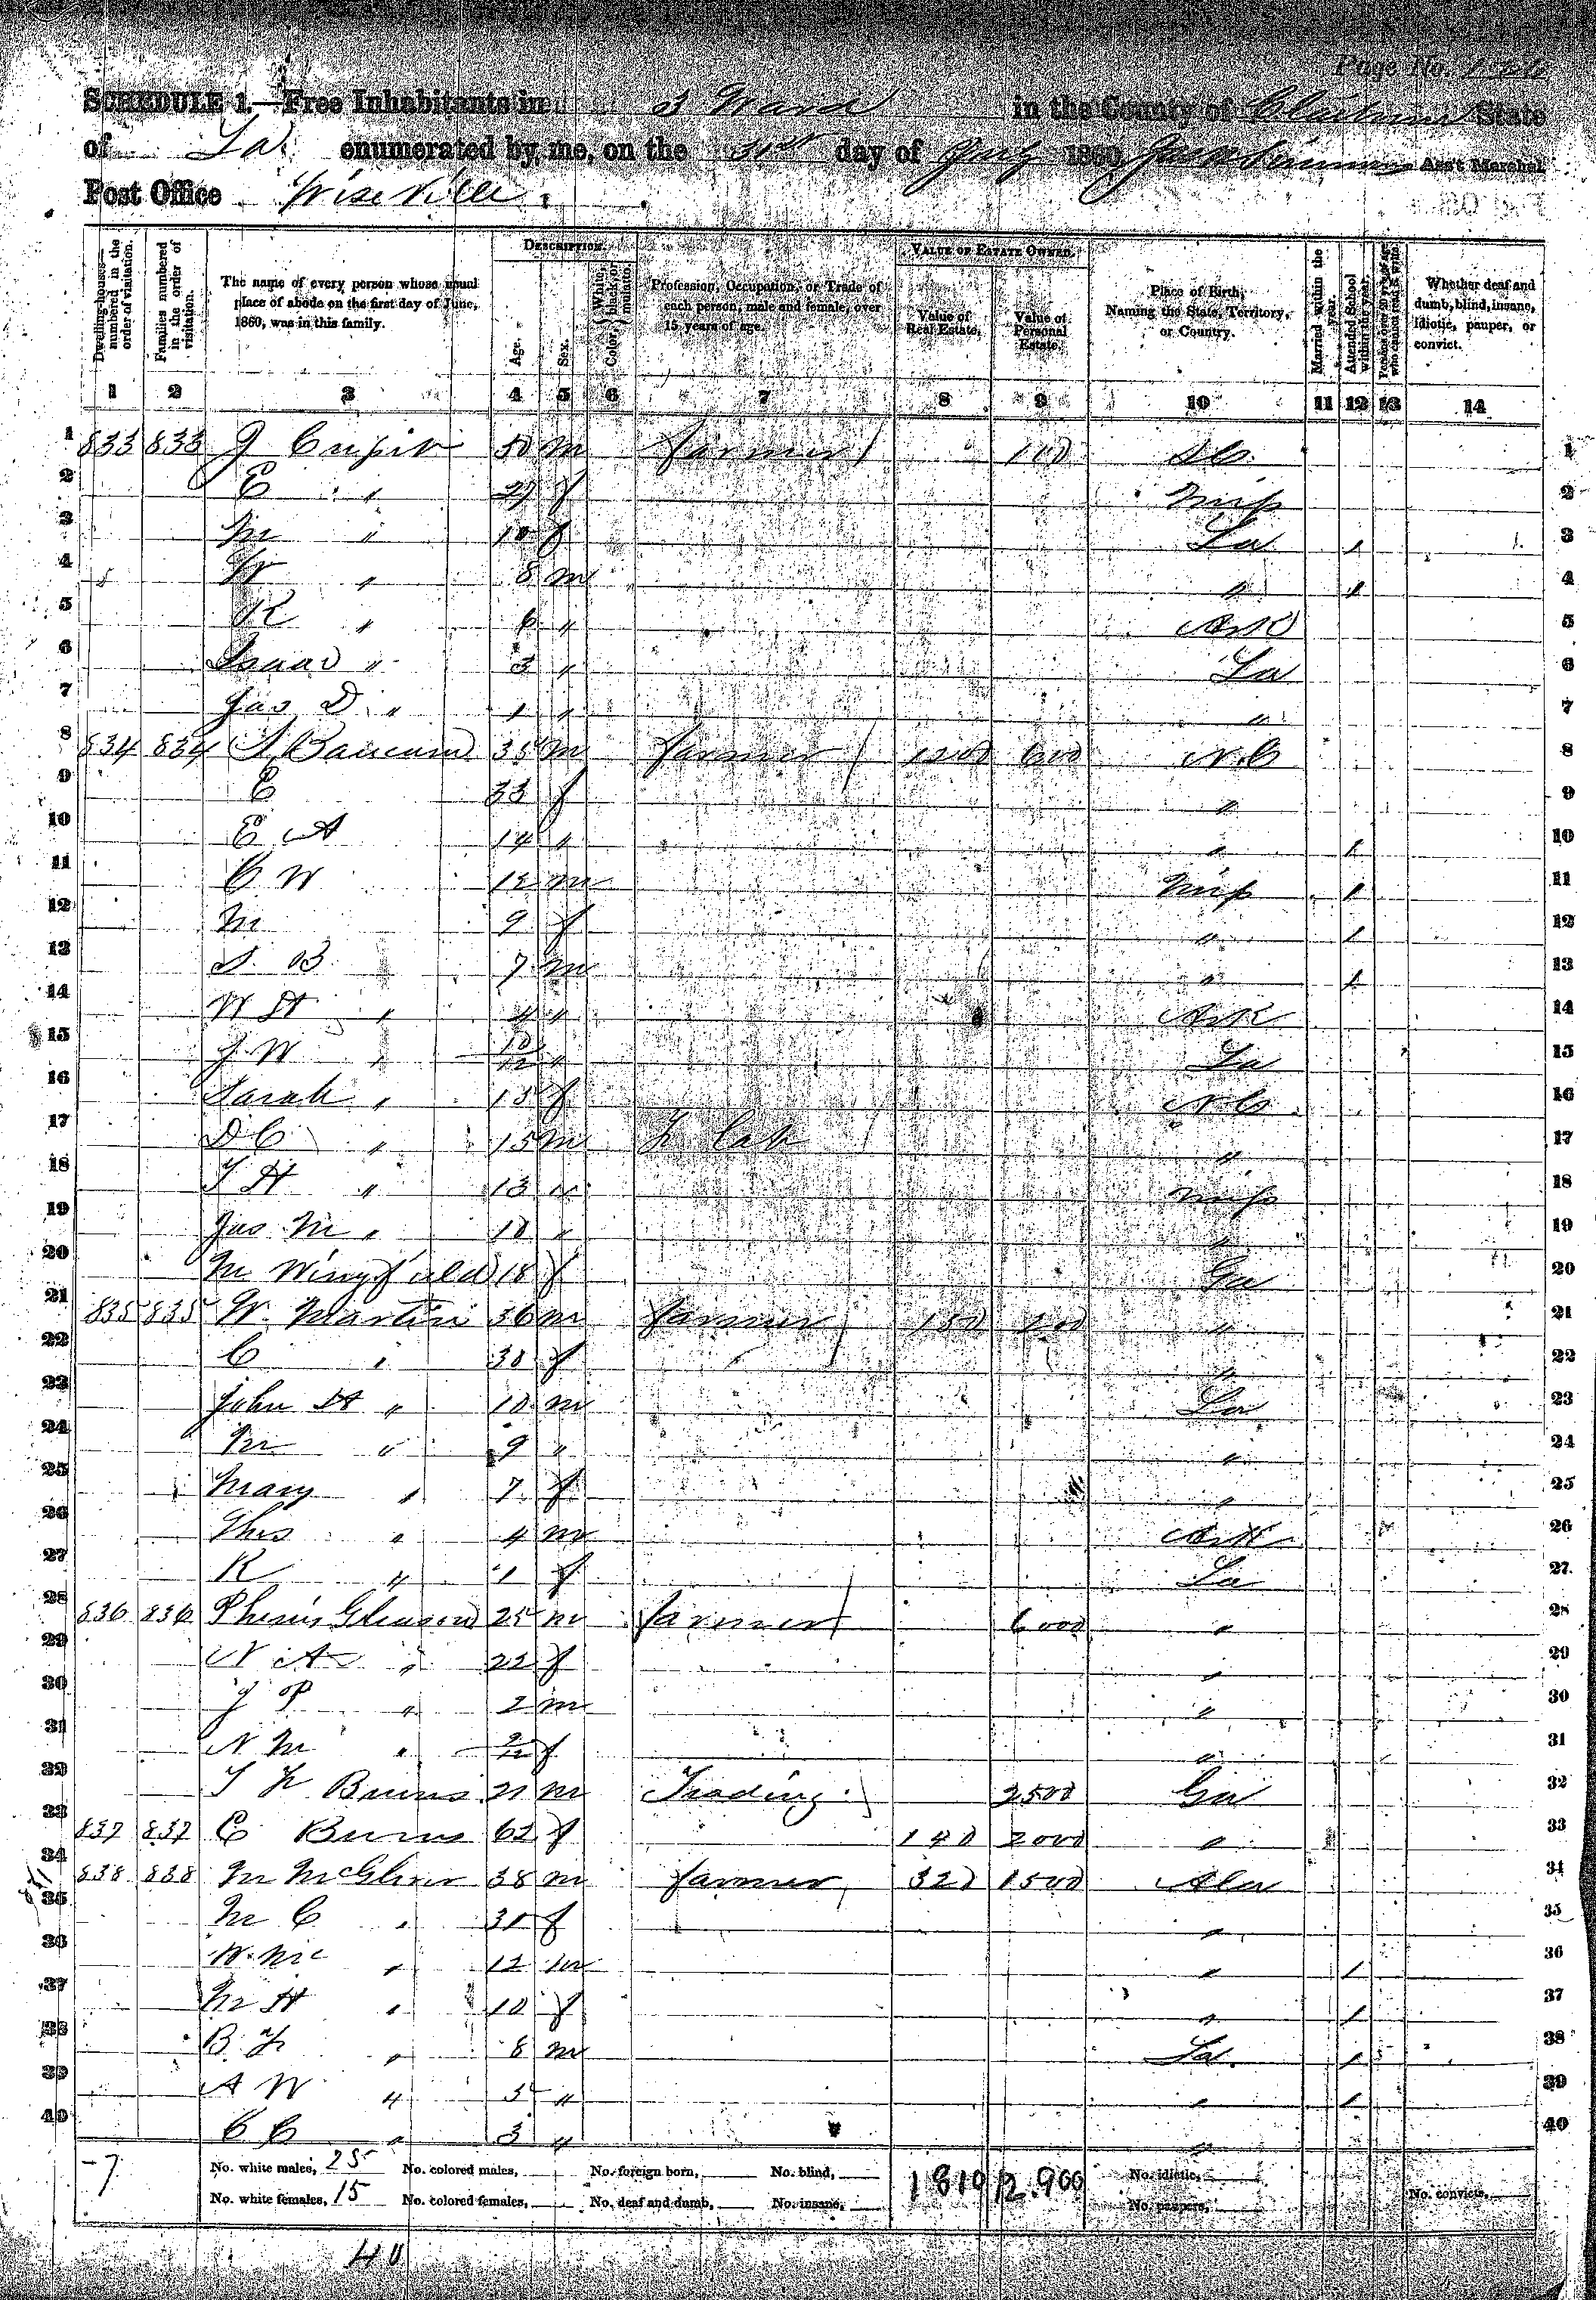 Page No.
SCHEDULE 1.—Free Inhabitants in 3 Ward in the County of Claiborne State
of La. enumerated by me, on the 31st day of July 1860. Ass't Marshal
Post Office Wiseville.
DESCRIPTION. VALUE OF ESTATE OWNED.
Dwelling-houses—numbered in the order of visitation.
Families numbered in the order of visitation.
The name of every person whose usual place of abode on the first day of June, 1860, was in this family.
Age.
Sex.
Color, { White, black, or mulatto.
Profession, Occupation, or Trade of each person, male and female, over 15 years of age.
Value of Real Estate.
Value of Personal Estate.
Place of Birth, Naming the State, Territory, or Country.
Married within the year.
Attended School within the year.
Persons over 20 y'rs of age who cannot read & write.
Whether deaf and dumb, blind, insane, idiotic, pauper, or convict.
1 2 3 4 5 6 7 8 9 10 11 12 13 14
1 833 833 J 50 m farmer 1
2 E " 27 f Miss 2
3 M " 10 f La / 3
4 W " 8 m " / 4
5 R " 6 " Ark 5
6 Isaac " 3 " La 6
7 Jas D " 1 " " 7
8 834 834 S Baucum 35 m farmer 1200 600 N.C 8
9 E 33 f " 9
10 E A 14 " " / 10
11 C W 12 m Miss / 11
12 M 9 f " / 12
13 S. B. 7 m " / 13
14 W H " 4 " Ark 14
15 J. W " 10/12 " La 15
16 Sarah " 15 f N C 16
17 D C " 15 m F Lab " 17
18 T H " 13 " Miss 18
19 Jas M " 10 " " 19
20 M Wingfield 18 f Ga 20
21 835 835 W. Martin 36 m farmer 150 200 " 21
22 C " 30 f " 22
23 John H " 10 m La 23
24 M " 9 " " 24
25 Mary " 7 f " 25
26 Thos " 4 m Ark 26
27 R " 1 f La 27
28 836 836 Gleason 25 m farmer 6000 " 28
29 N A " 22 f " 29
30 J P " 2 m " 30
31 N M " 2/12 f " 31
32 T F Burns 21 m Trading 2500 Ga 32
33 837 837 E Burns 62 f 140 2000 " 33
34 838 838 M 38 m farmer 320 1500 Ala 34
35 M C " 31 f " 35
36 W. Mc " 12 m " / 36
37 M H " 10 f " / 37
38 B F " 8 m La. / 38
39 A W " 5 " " / 39
40 C C " 3 " " 40
-7 No. white males, 25 No. colored males, No. foreign born, No. blind, 1810 12.900 No. idiotic,
No. white females, 15 No. colored females, No. deaf and dumb, No. insane, No. paupers, No. convicts,
40